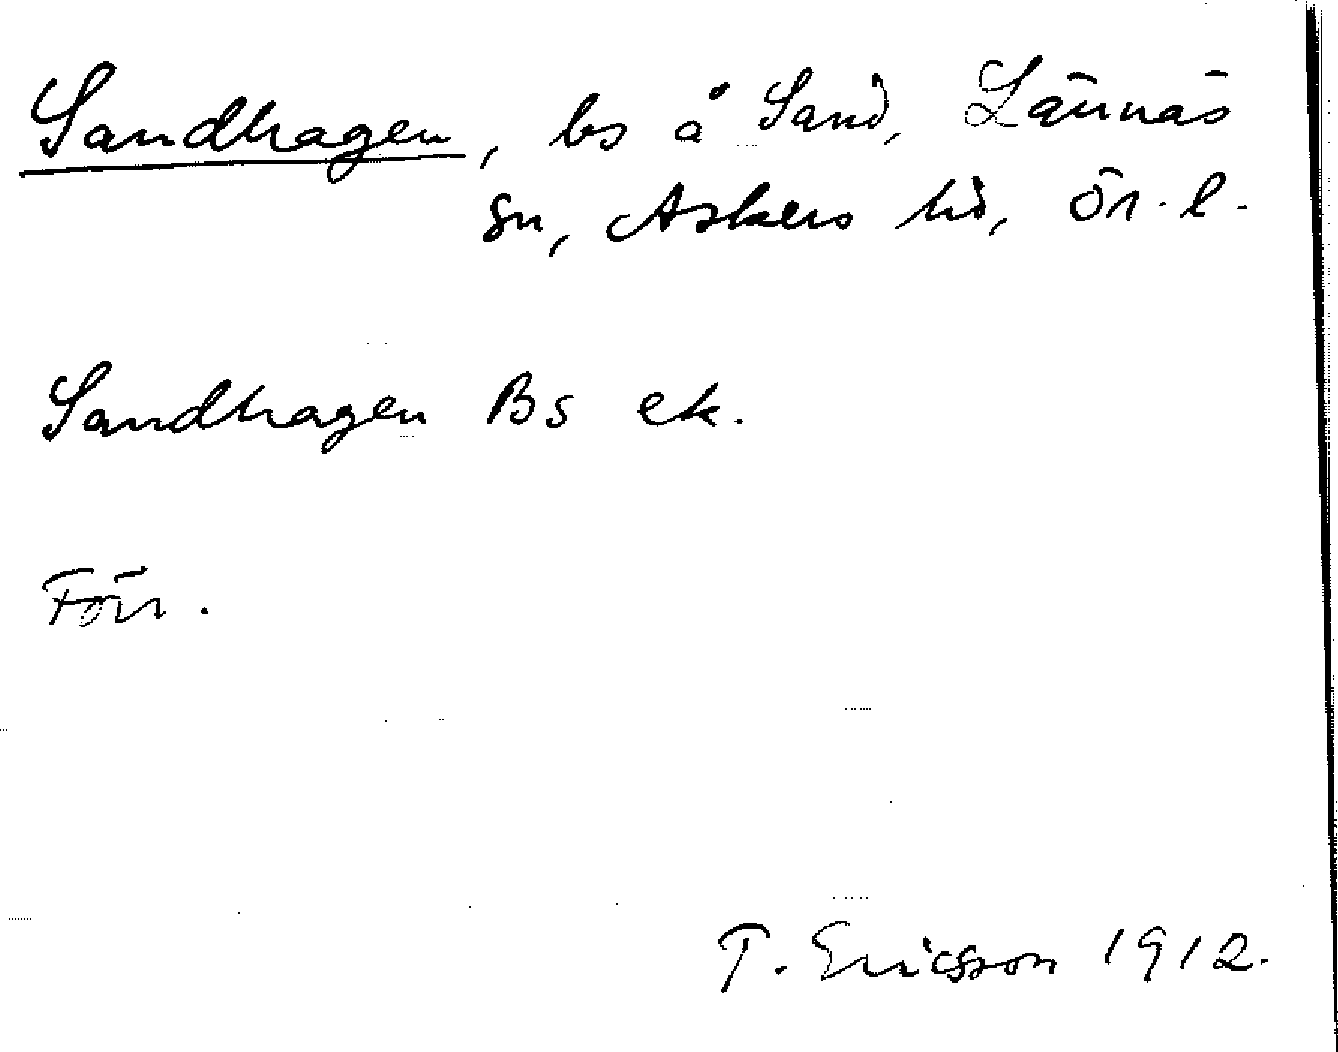 Sandhagen, bs å Sand, Lännäs
sn, Askers hd, Ör. l.
Sandhagen Bs ek.
Förr.
T. Ericsson 1912.